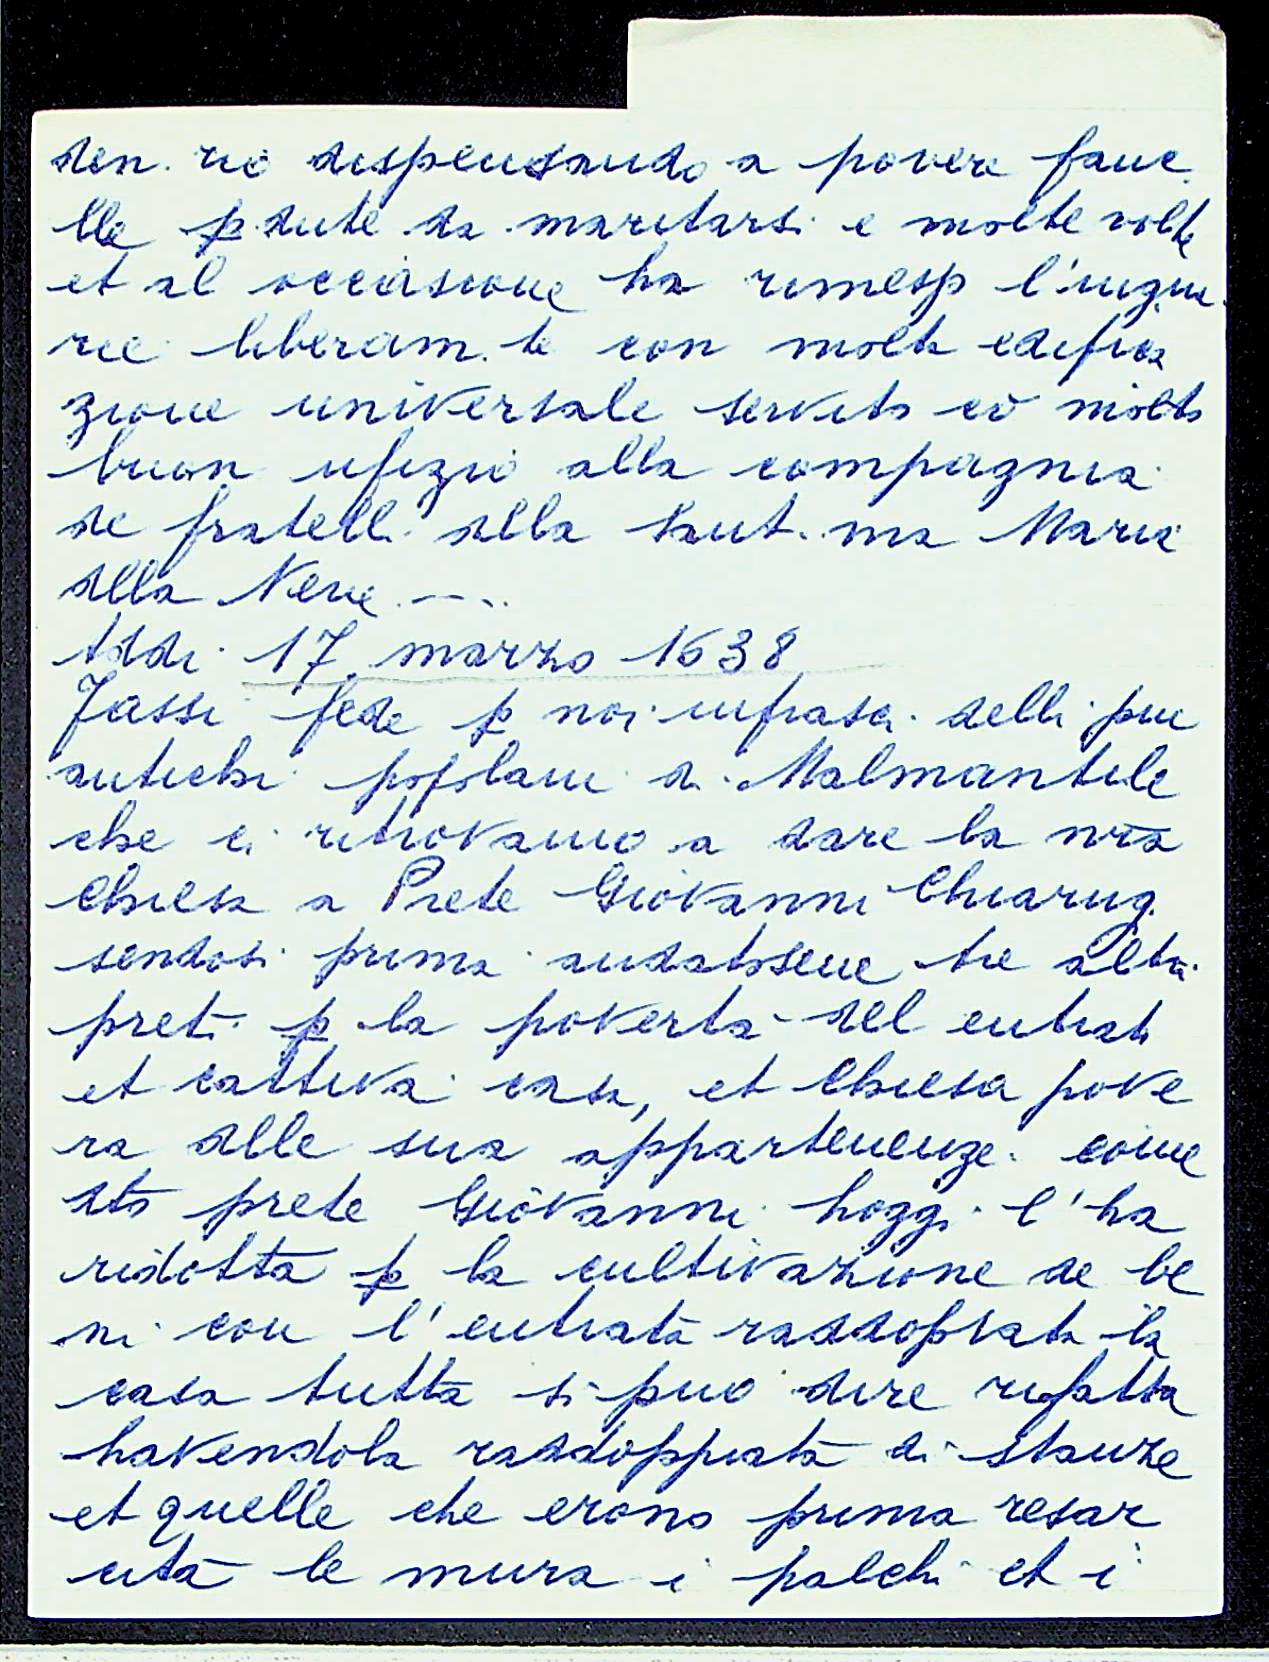 den. rio dispensando a povere fanc
lle p dute da maritarsi e molte volte
et al occasione ha rimesp l'ingiu
rie liberam. te con molta edifica
zione universale servito cō molto
buon ufizio alla compagnia
de fratelli dlla Sant. ma Maria
dlla Neve ---
Addi 17 marzo 1638
Fassi fede p noi infrasci delli piu
antichi popolani di Malmantile
che ci ritrovamo a dare la nr̄a
Chiesa a Prete Giovanni Chiarug.
sendosi prima andatosene tre altri
preti p la poverta del entrata
et cattiva casa, et Chiesa pove
ra dlle sua appartenenze. come
dto prete Giovanni hoggi l'ha
ridotta p la cultivazione de be
ni con l'entrata raddopiata la
casa tutta si puo dire rifatta
havendola raddoppiata di stanze
et quelle che erono prima resar
cita le mura i palchi et i